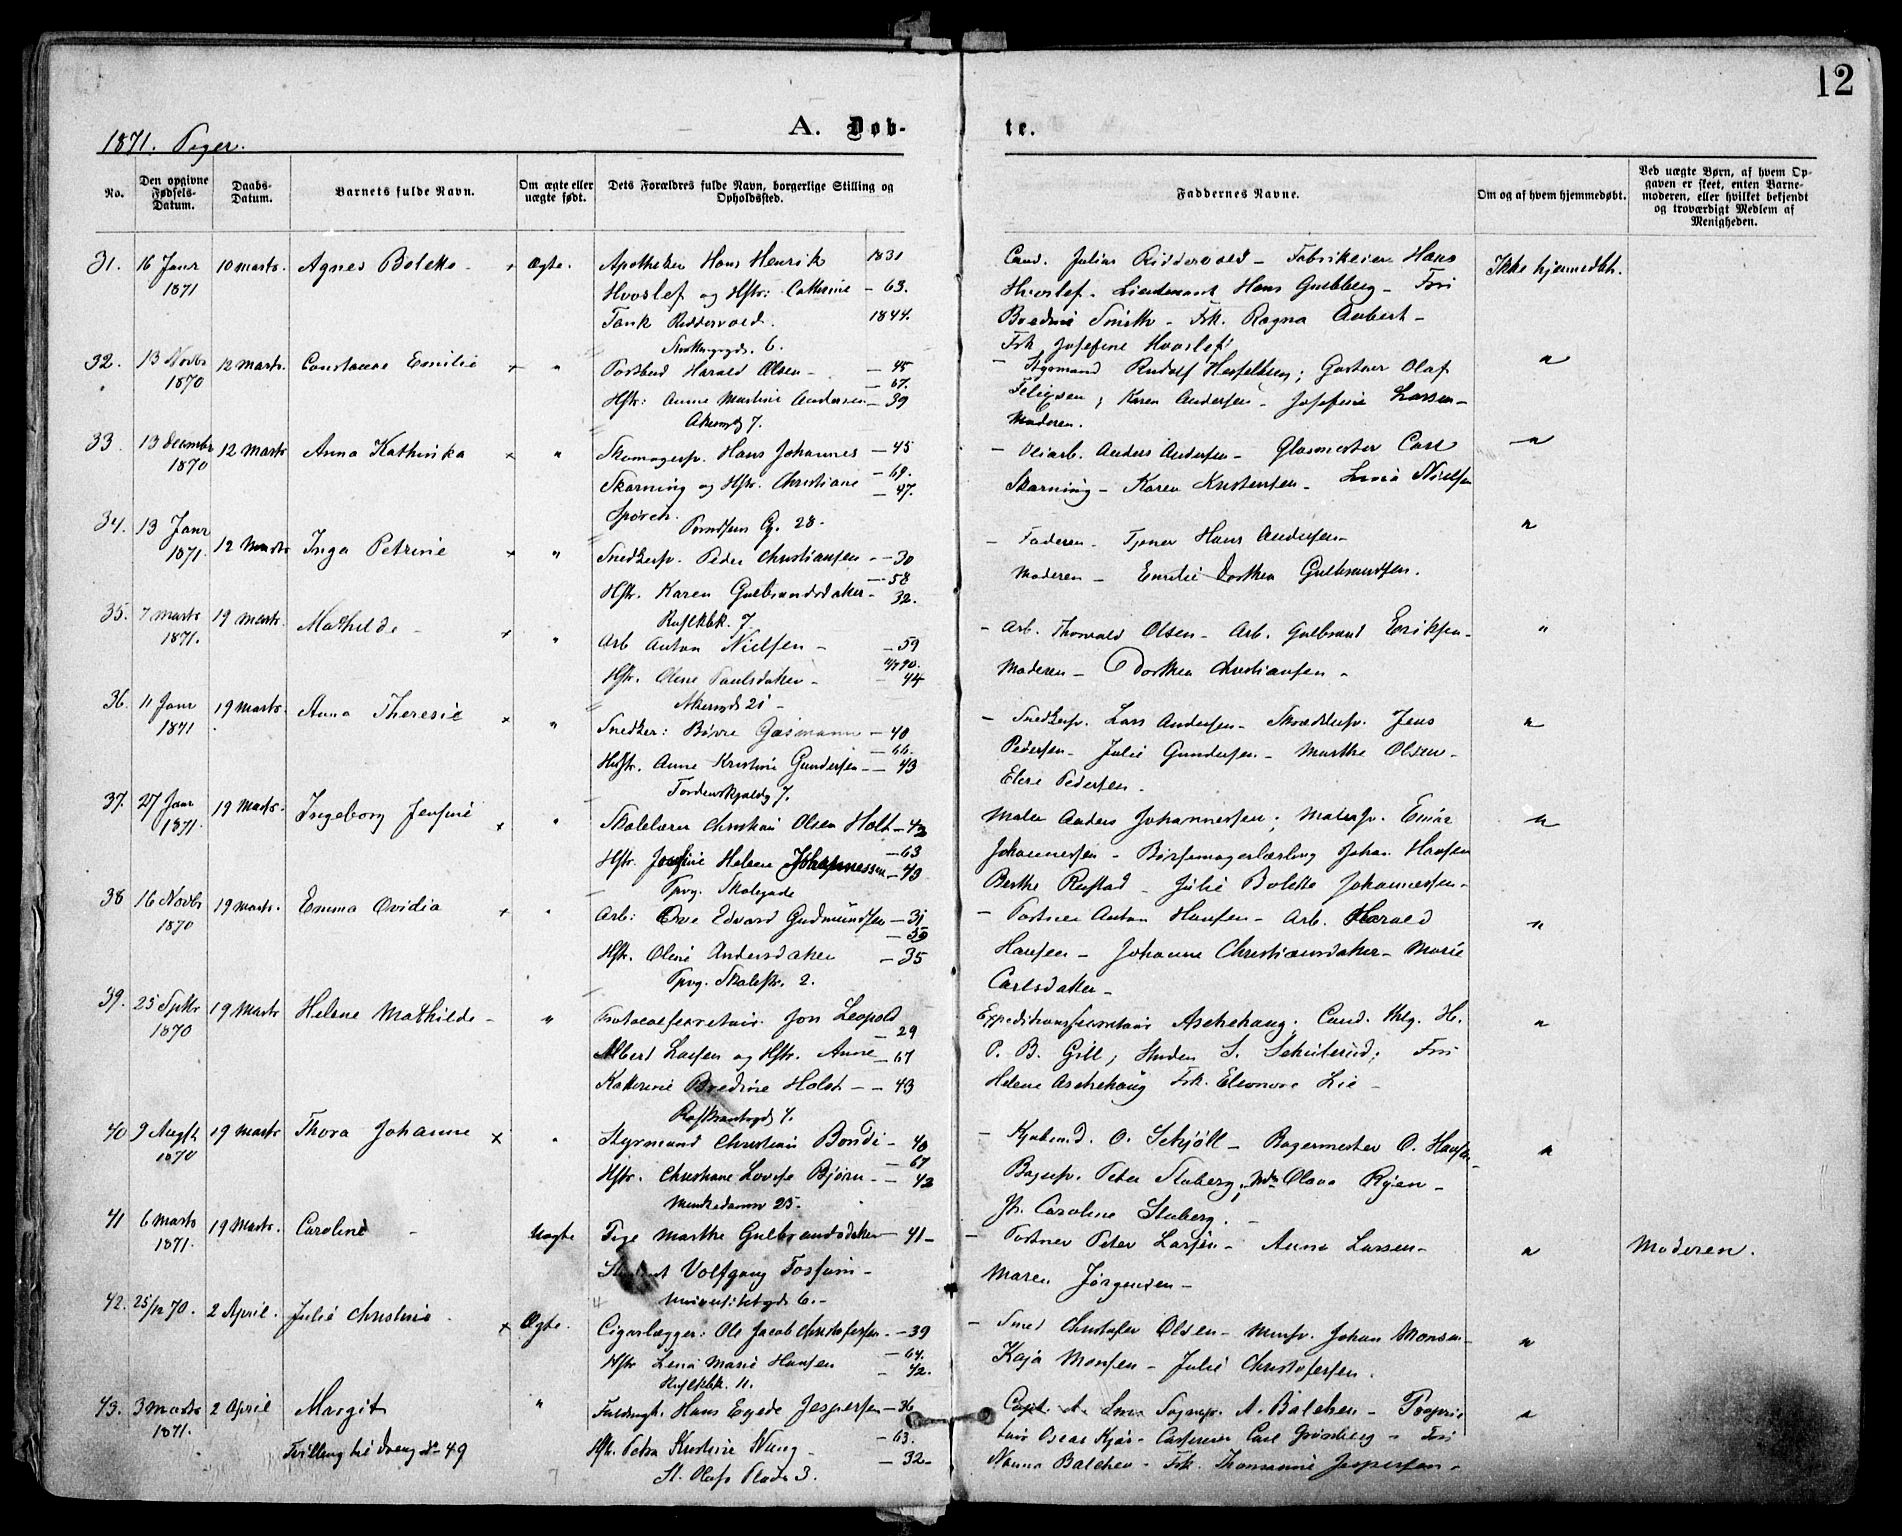 12
1871. Piger.
A. Døb-
te.
No.
Den opgivne Fødsels-Datum.
Daabs-Datum.
Barnets fulde Navn.
Om ægte eller uægte født.
Dets Forældres fulde Navn, borgerlige Stilling og Opholdssted.
Faddernes Navne.
Om og af hvem hjemmedøbt.
Ved uægte Børn, af hvem Opgaven er skeet, enten Barnemoderen, eller hvilket bekjendt og troværdigt Medlem af Menigheden.
31. 16 Janr 1871 10 marts. Agnes Bolette Ægte. Apotheker Hans Henrik 1831 Cand. Julius Riddervold - Fabrikeier Hans Ikke hjemmedøbt.
Hvoslef og Hstr: Catherine - 63. Hvoslef. Lieutenant Hans Guldberg - Fru
Tank Riddervold. 1844. Bredine Smith - Frk. Ragna Aubert -
6. Frk. Josefine Hvoslef
32. 13 Novbr 1870 12 marts. Constance Emilie + " Postbud Harald Olsen - 45 - Styrmand Rudolf Hesselberg; Gartner Olaf "
- 67.
Hstr: Anne Martine Andersen - 39 Karen Andersen - Josefine Larsen -
Akersg 7. Moderen.
33. 13 Decembr 1870 12 Marts Anna Kathinka + " Skomagersv. Hans Johannes - 45 - Anders Andersen - Glasmester Carl "
- 69.
Skarning og Hstr. Christiane - 47. Skarning - Karen Kristensen - Nielsen
28.
34. 13 Janr 1871. 12 Marts Inga Petrine + " Snedkersv. Peder Christiansen - 30 - Faderen. Tjener Hans Andersen - "
- 58
Hstr. Karen Gulbrandsdatter - 32. Moderen - Emilie Dorthea Gulbrandsen.
7.
35. 7 Marts 1871. 19 Marts. Mathilde - + " Arb Anton Nielsen - 59 - Arb. Thorvald Olsen - Arb. Gulbrand Eriksen - "
Hstr. Oline Paulsdatter - 44 Moderen - Dorthea Christiansen -
Akersgd 21 -
36. 11 Janr 1871 19 Marts. Anna Theresie + " Snedker: Børre Gasmann - 40 - Snedkersv. Lars Andersen - Skrædersv. Jens "
- 66.
Hustr. Anne Kristine Gundersen - 43 Pedersen - Julie Gundersen - Marthe Olsen -
Tordenskjoldsg 7. Pedersen.
37. 27 Janr 1871. 19 Marts. Ingeborg Jensine + " Skolelærer Christian Olsen Holt - 42 Maler Anders Johannessen; Malersv. Einar "
- 63
Hstr. Helene Johannessen - 43 Johannessen - Børsemagerlærling Johan Hansen
Tpvg. Skolegade Berthe Rustad - Julie Bolette Johannessen -
38 16 Novbr 1870 19 Marts. Emma Ovidia + " Arb: Ove Edvard Gudmundsen - 31 - Portner Anton Hansen - Arb. Harald "
Hstr. Oline Andersdatter - 35 Hansen - Johanne Christiansdatter - Marie
Tpvg. Skolestr. 2. Carlsdatter -
39. 25 Septbr 1870 19 Marts Helene Mathilde - " Jon Leopold 29 Expeditionssecretair Aschehoug; Cand. H. "
Albert Larsen og Hstr. Anne - 67 P. B. Gill, Fru
Kathrine Bredine Holst - 43 Helene Aschehoug Frk. Eleonore Lie -
4.
40 9 Augst 1870 19 Marts Thora Johanne + " Styrmand Christian Bondi - 40 - O. Schjöll - Bagermester O. Hansen "
- 67
Hstr. Christiane Lovise Bjørn - 42 Bagersv. Peter Stuberg; Olava Ryen -
Munkedamsv 25. Caroline Stuberg. -
41 6 Marts 1871. 19 Marts. Caroline - Uægte Pige Marthe Gulbrandsdatter - 41 - - Portner Peter Larsen - Anna Larsen - " Moderen.
Student Volfgang Fossum - Maren Jørgensen -
Universitetsgd 6. -
42. 25/12 70. 2 April. Julie Christine + Ægte. Cigarlægger: Ole Jacob Christofersen - 39 - Smed Christofer Olsen - Mursv. Johan Monsen - "
- 64.
Hstr Lena Marie Hansen 42. Kaja Monsen - Julie Christofersen.
11.
43. 3 Marts 1871. 2 April Margit " Fuldmgt. Hans Egede Jespersen - 36 Capt. A. Balchen - Proprie "
- 63.
Tvilling til dreng No 49 Hstr. Petra Kristine Wang - 32 - tair Oscar Kjær - Carl Grønberg - Fru
St. Olafs Plads 3. Nanna Balchen - Frk. Thomanine Jespersen -